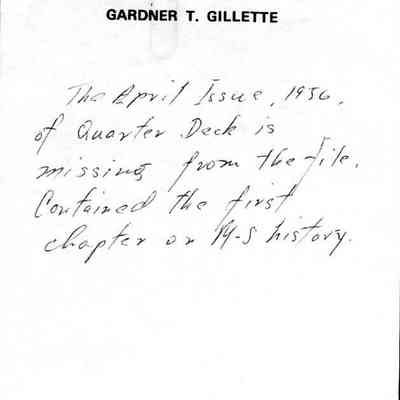 GARDNER T. GILLETTE
The April Issue, 1936,
of Quarter Deck is
missing from the file.
Contained the first
chapter on M-S history.